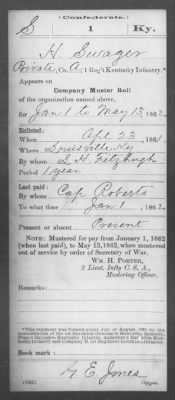 (Confederate.)
S 1 Ky.
H. Swager
Private, Co. A, 1 Reg't Kentucky Infantry.*
Appears on
Company Muster Roll
of the organization named above,
for Jan 1 to May 13, 1862.
Enlisted:
When Apl 23, 1861.
Where Louisville Ky
By whom S. H. Fitzhugh
Period 1 year
Last paid:
By whom Cap Roberts
To what time Jan 1, 1862.
Present or absent Present
NOTE: Mustered for pay from January 1, 1862
(last pay), to May 13, 1862, when mustered
out of service by order of Secretary of War.
WM. H. PORTER,
2 Lieut. Infty C. S. A.,
Mustering Officer.
Remarks:
*This regiment was formed about July or August, 1861, by the consolidation of the
Book mark:
G E Jones
(642) Copyist.